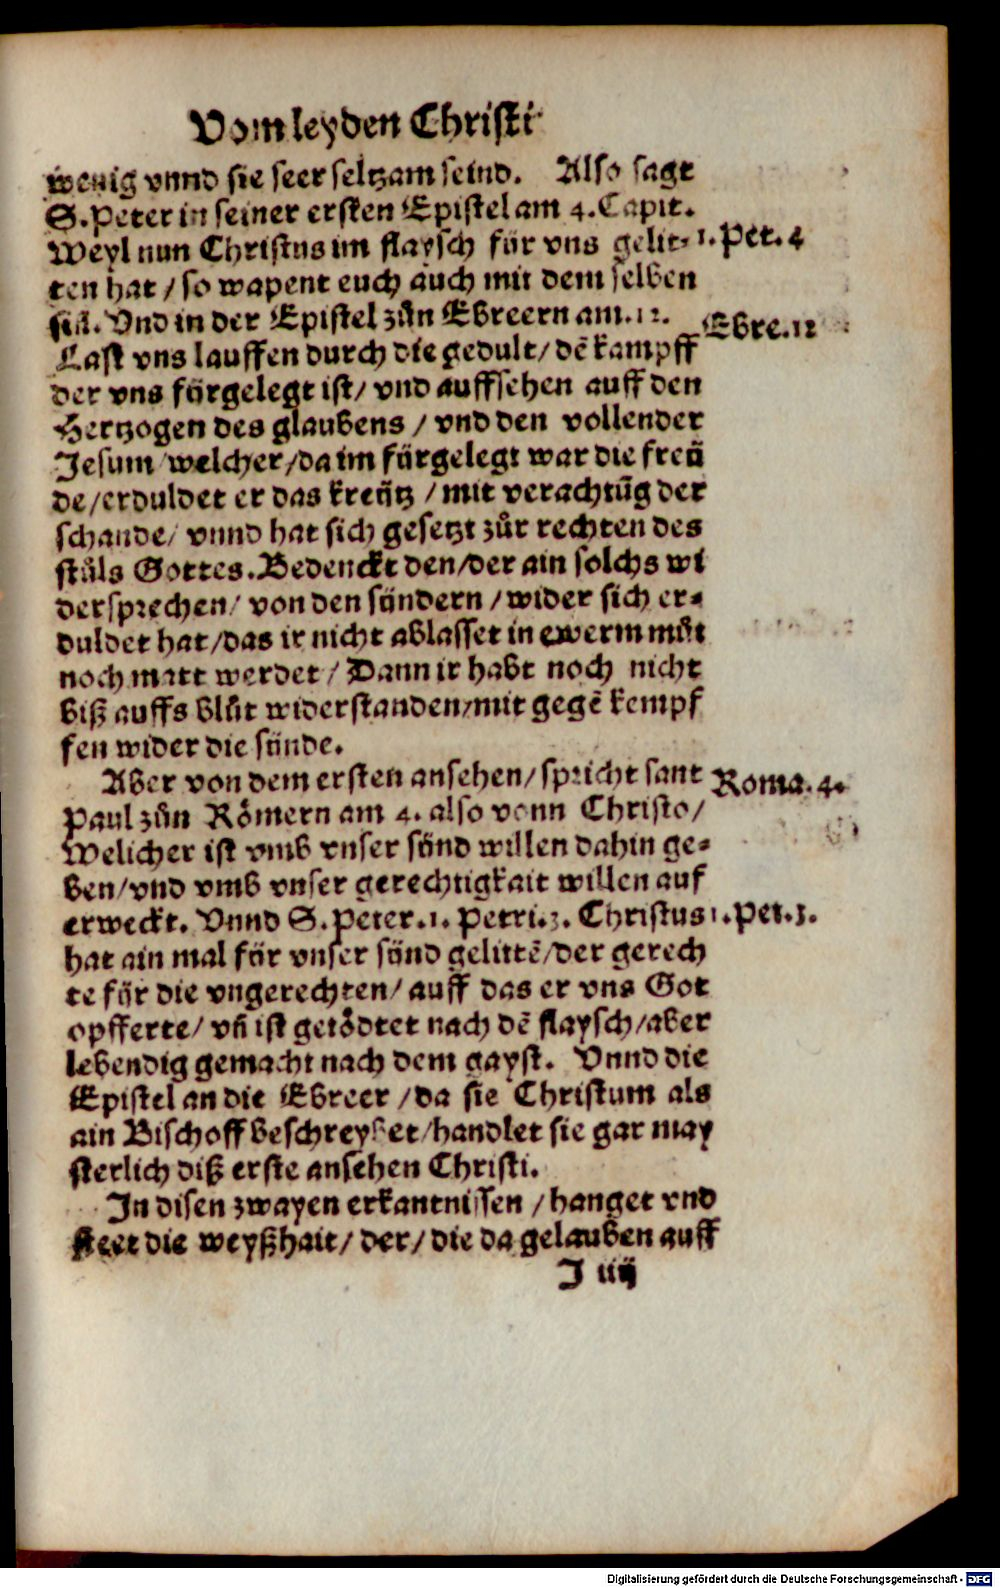 Vom leyden Christi
wenig vnnd sie seer seltzam seind. Also sagt
S. Peter in seiner ersten Epistel am 4. Capit.
Weyl nun Christus im flaysch für vns gelit- 1. Pet. 4
ten hat / so wapent euch auch mit dem selben
siñ. Vnd in der Epistel zůn Ebreern am. 12. Ebre. 12
Last vns lauffen durch die gedult / dẽ kampff
der vns fürgelegt ist / vnd auffsehen auff den
Hertzogen des glaubens / vnd den vollender
Jesum welcher / da im fürgelegt war die freü
de / erduldet er das kreütz / mit verachtũg der
schande / vnnd hat sich gesetzt zůr rechten des
stůls Gottes. Bedenckt den / der ain solchs wi
dersprechen / von den sündern / wider sich er-
duldet hat / das ir nicht ablasset in ewerm můt
noch matt werdet / Dann ir habt noch nicht
biß auffs blůt widerstanden / mit gegẽ kempf
fen wider die sünde.
Aber von dem ersten ansehen / spricht sant Roma. 4.
Paul zůn Römern am 4. also vonn Christo /
Welicher ist vmb vnser sünd willen dahin ge-
ben / vnd vmb vnser gerechtigkait willen auf
erweckt. Vnnd S. Peter. 1. Petri. 3. Christus 1. Pet. 3.
hat ain mal für vnser sünd gelittẽ / der gerech
te für die vngerechten / auff das er vns Got
opfferte / vñ ist getödtet nach dẽ flaysch / aber
lebendig gemacht nach dem gayst. Vnnd die
Epistel an die Ebreer / da sie Christum als
ain Bischoff beschreybet / handlet sie gar may
sterlich diß erste ansehen Christi.
In disen zwayen erkantnissen / hanget vnd
steet die weyßhait / der / die da gelauben auff
J iiij
Digitalisierung gefördert durch die Deutsche Forschungsgemeinschaft - DFG